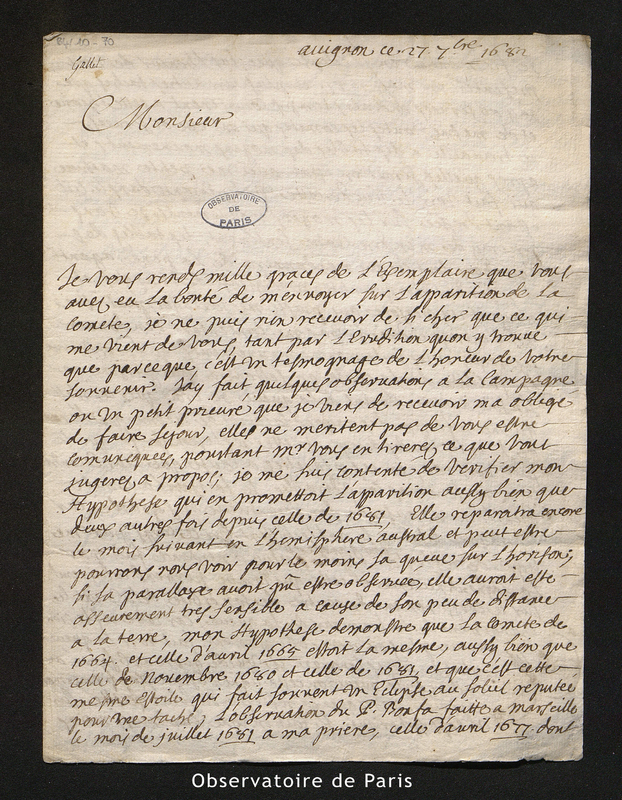 84/10-70
Gallet
avignon ce 27. 7bre 1682
Monsieur
OBSERVATOIRE
DE
PARIS
Je vous rends mille graces de L'Exemplaire que vous
aves eu La bonté de m'envoyer sur L'apparition de La
Comete, je ne puis rien recevoir de si cher que ce qui
me vient de vous, tant par L'Erudition quon y trouve
que parceque c'est un tesmognage de L'honeur de votre
souvenir. J'ay fait quelques observations a La Campagne
ou un petit prieuré que je viens de recevoir ma obligé
de faire sejour, elles ne meritent pas de vous estre
comuniquées, pourtant mr vous en tireres ce que vous
jugeres a propos; je me suis contente de verifier mon
Hypothese qui en promettoit L'apparition aussy bien que
deux autres fois depuis celle de 1681, Elle reparoitra encore
le mois suivant en L'hemisphere austral et peut estre
pourrons nous voir pour le moins sa queue sur L'horison;
si sa parallaxe avoit pu estre observée, elle auroit esté
asseurement tres sensible a cause de son peu de distance
a la terre, mon Hypothese demonstre que la Comete de
1664. et celle d'avril 1665 estoit La mesme, aussy bien que
celle de Novembre 1680 et celle de 1681, et que c'est cette
mesme Estoile qui fait souvent un Eclipse au soleil reputée
pour une tache, L'observation du P. Bonfa faitte a marseille
le mois de juillet 1681 a ma priere, celle d'avril 1677. dont
Observatoire de Paris